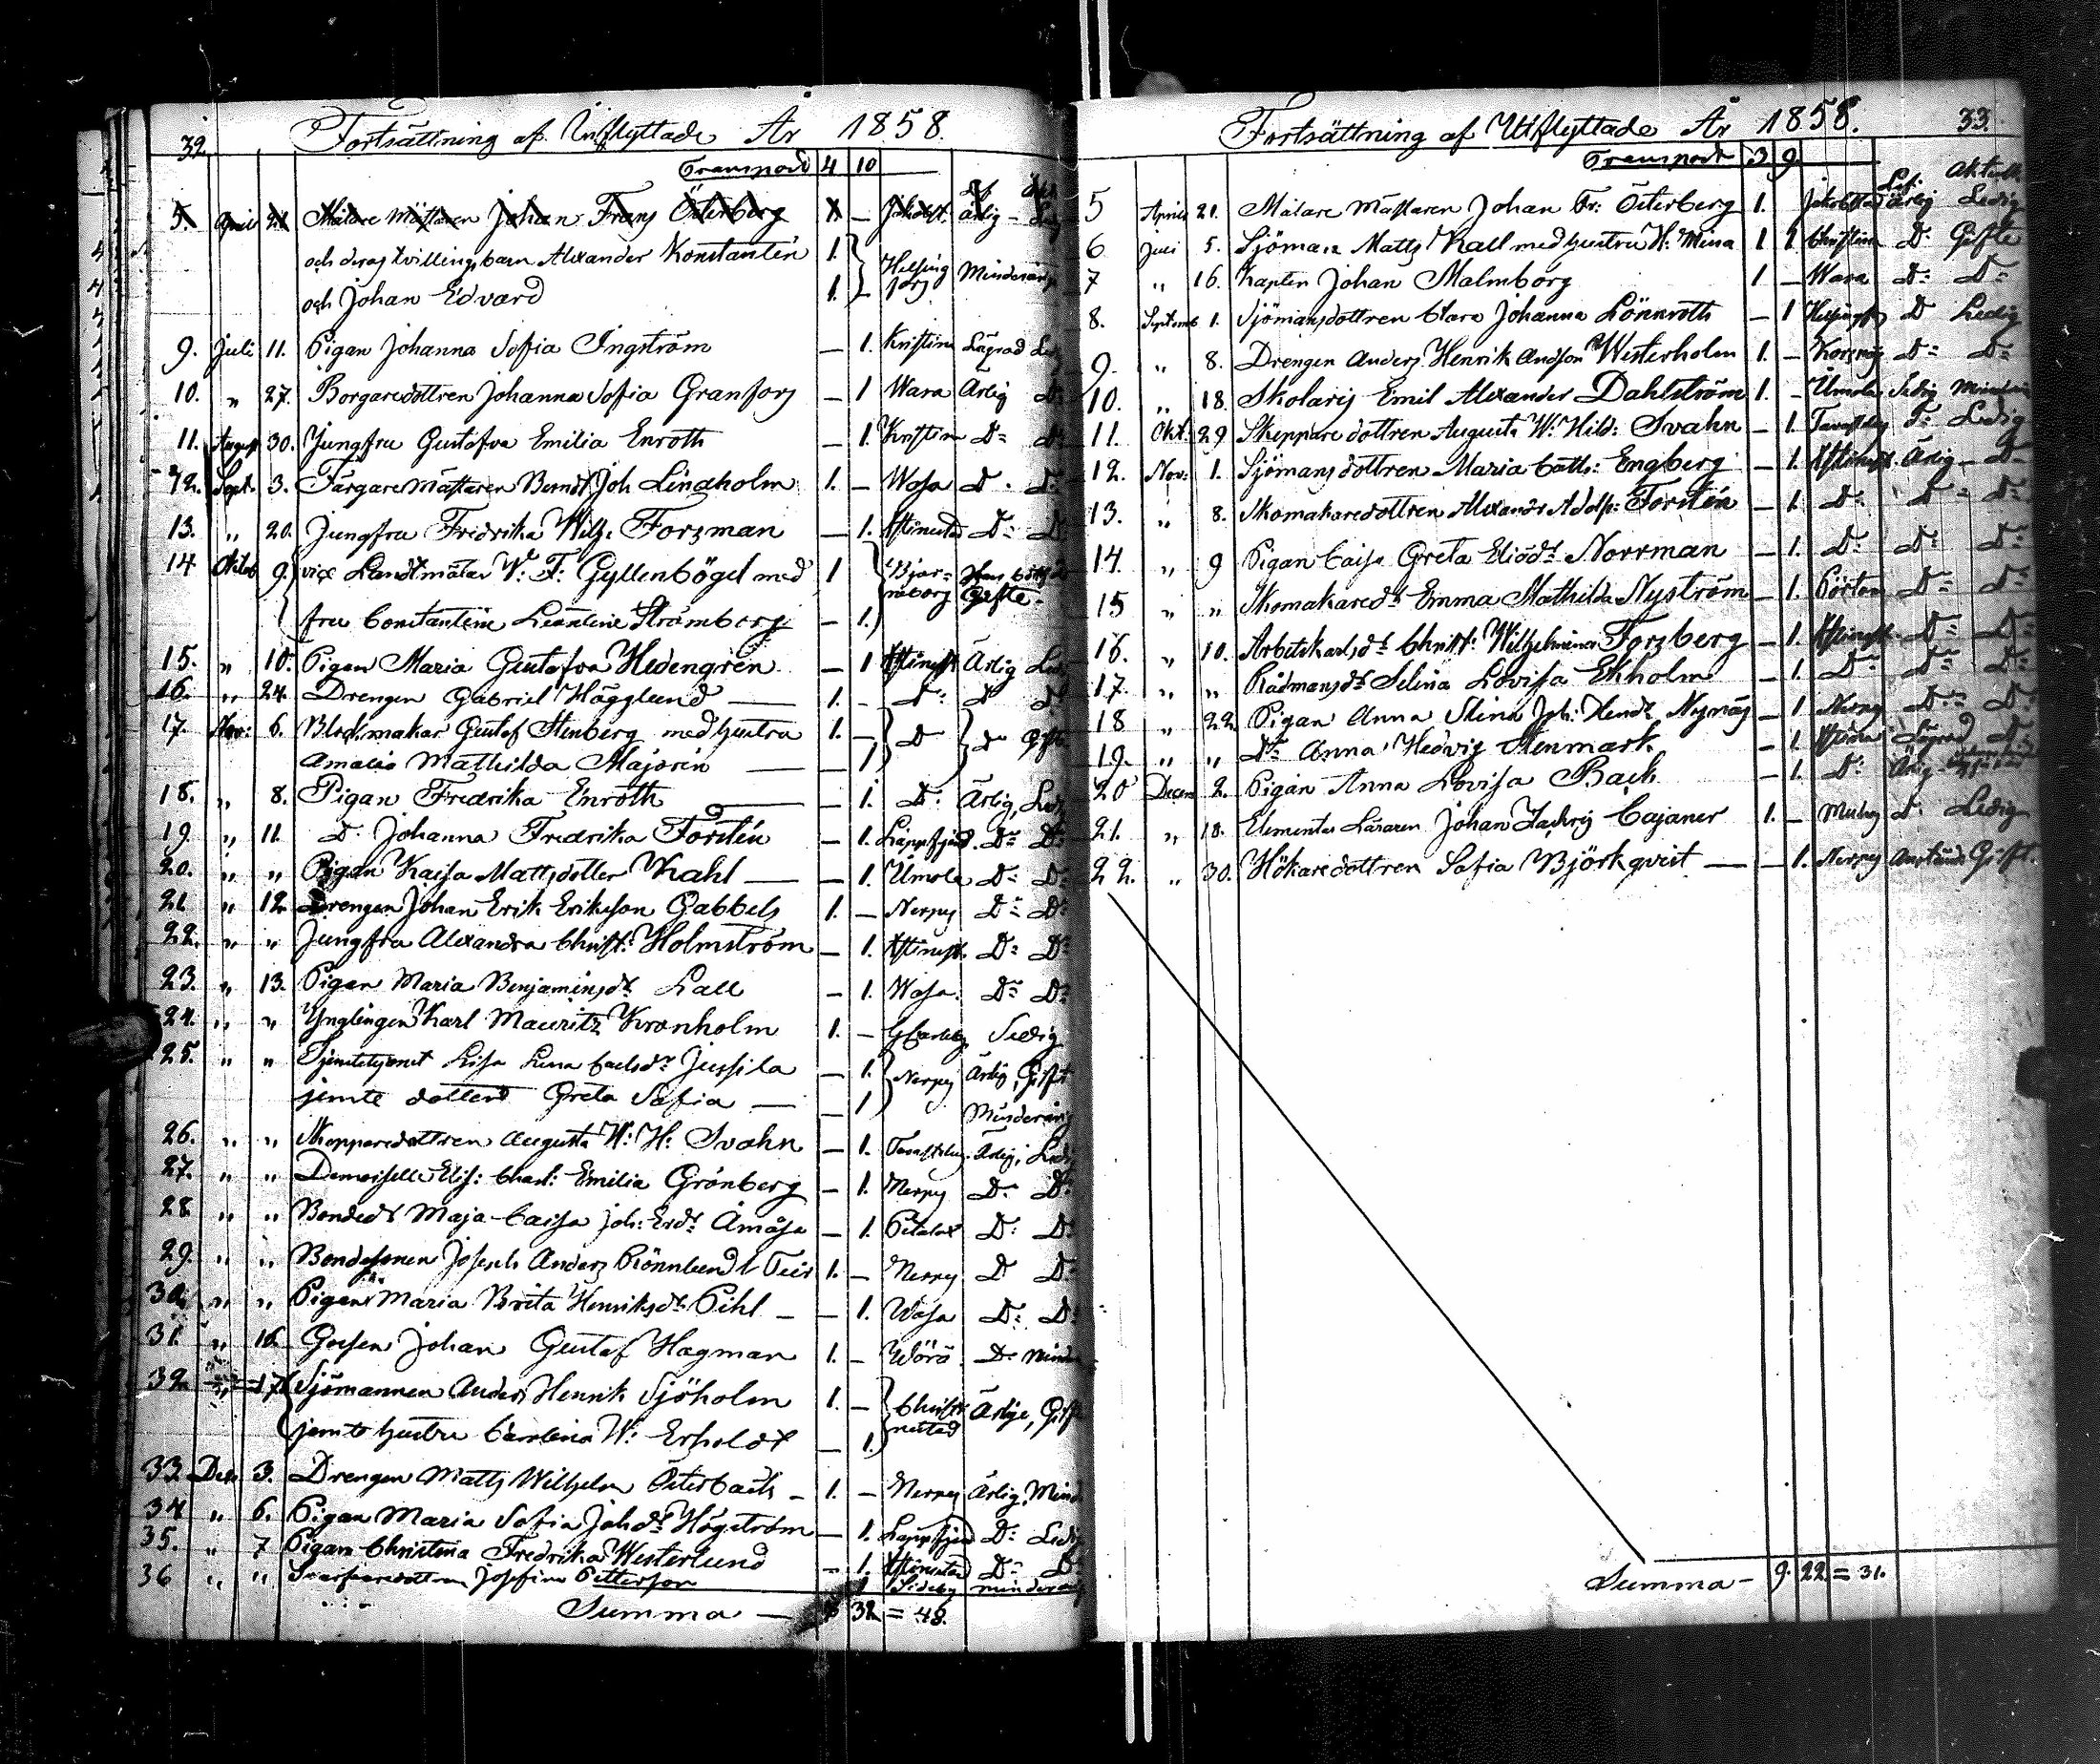 32. Fortsättning af Inflyttade År 1858.
Transport 4 10
5. April 21. Målare Mästaren Johan Frans Österberg 1. — Jakobst. Ärlig — Ledig
och deras tvillingsbarn Alexander Konstantin 1. Helsing
och Johan Edvard 1. — fors Minderårige
9. Juli 11. Pigan Johanna Sofia Ingström — 1. Kristine Lagrad Led
10. " 27. Borgaredottren Johanna Sofia Granfors — 1 Wasa Ärlig D:
11. August 30. Jungfru Gustafva Emilia Enroth — 1. Kristin D= D:
12. Sept. 3. Färgaremästaren Berndt Joh Lindholm 1. — Wasa D. D:
13. " 20. Jungfru Fredrika Wilh. Forsman — 1. Kstinestad D= D:
14 Oktob 9. vice Landtmätar W: F: Gyllenbögel med 1 Björ=
fru Constantine Leantine Strömberg — 1. neborg Gifte.
15. " 10. Pigan Maria Gustafva Hedengrén — 1 Kstinest Ärlig Led
16. " 24. Drengen Gabriel Hägglund — 1. - D: D D
17. Nov: 6. Blockmakar Gustaf Stenberg med hustru 1. — D D Gift
Amalia Mathilda Majorin — — 1
18. " 8. Pigan Fredrika Enroth — — 1. D: Ärlig, Led
19. " 11. D. Johanna Fredrika Forstén — 1. Lappfjärd. D= D:
20. " " Pigan Kaisa Mattsdotter Kahl — — 1. Ulmola D= D:
21. " 12. Drengen Johan Erik Erikson Gabbels 1. — Nerpes D= D:
22. " " Jungfru Alexandra Christ: Holmström — 1. Kstinest. D= D=
23. " 13. Pigan Maria Benjaminsdr Lall — 1. Wasa. D= D=
24. " " Ynglingen Karl Mauritz Kronholm 1. — GCarleby Sedig
25. " " Tjenstehjonet Lisa Lena Carlsdr Jussila — 1. Nerpes Ärlig, Gift
jemte dotter Greta Sofia — — 1 Minderårig
26. " " Skepparedottren Augusta W: H: Svahn — 1. Tavastehus Ärlig, Led
27. " " Demoiselle Elis: Charl: Emilia Grönberg — 1. Nerpes D: D:
28 " " Bondedr Maja Caisa Joh: Erdr Åmåsa — 1. Petalax D: D:
29. " " Bondesonen Joseph Anders Rönnlund l. Teir 1. — Nerpes D D:
30. " " Pigan Maria Brita Henriksdr Pihl — — 1. Wasa D: D:
31. " 16. Gossen Johan Gustaf Hagman 1. — Wörå. D: Mind
32. 17. Sjömannen Anders Henrik Sjöholm 1. — Christi Ärlige, Gift
jemte hustru Carolina W: Ersholdt — 1. nestad
33. Dec 3. Drengen Matts Wilhelm Österback — 1. — Nerpes Ärlig, Mind
34 " 6. Pigan Maria Sofia Johdr Högström — 1. Lappfjerd D: Ledig
35. " 7 Pigan Christina Fredrika Westerlund — 1. Kstinestad D= D:
36 " " Josefina Petterson 1 Sideby minderårig
Summa — 32 = 48.
Fortsättning af Utflyttade År 1858. 33.
Transport 3 9.
5 April 21. Målare Mästaren Johan Fr: Österberg 1. Jakobstad Ärlig Ledig
6 Juli 5. Sjöman Matts Kall med hustru H: Mina 1 1 Christine D: Gifte
7 " 16. Kapten Johan Malmborg 1 — Wasa D: D=
8. Septemb 1. Sjömansdottren Clara Johanna Lönnroth — 1 Helsingfs D Ledig
9. " 8. Drengen Anders Henrik Andson Westerholm 1. — Korsnäs D= D=
10. " 18. Skolaris Emil Alexander Dahlström 1. - Ulmola Sedig Minderår
11. Okt: 29. Skeppare dottren Augusta W: Hild: Svahn — 1. Tavastehus D: Ledig
12. Nov: 1. Sjömans dottren Maria Cath: Engberg — 1. Kstinest. Ärlig — D=
13. " 8. Skomakaredottren Alexandr Adolf: Forstén — 1. D: D= D=
14. " 9 Pigan Caisa Greta Eliædr Norrman — 1. D: D: D:
15 " " Skomakaredr Emma Mathilda Nyström — 1. Pörtom D= D=
16. " 10. Arbetskarlsdr Christ: Wilhelmina Forsberg — 1. Kstinest. D= D=
17. " " Rådmansdr Selina Lovisa Ekholm — 1. D= D= D=
18 " 22. Pigan Anna Stina Joh: Hendr Nynäs — 1 Nerpes D:= D:
19. " " D= Anna Hedvig Stenmark — 1. Kstine Lagrad D:
20 Decem 2. Pigan Anna Lovisa Back — 1. D: Ärlig
21. " 18. Elementar Läraren Johan Zachris Cajaner 1. — D: Ledig
22. " 30. Hökaredottren Sofia Björkqvist — — 1. Nerpes Gift.
Summa — 9. 22. = 31.